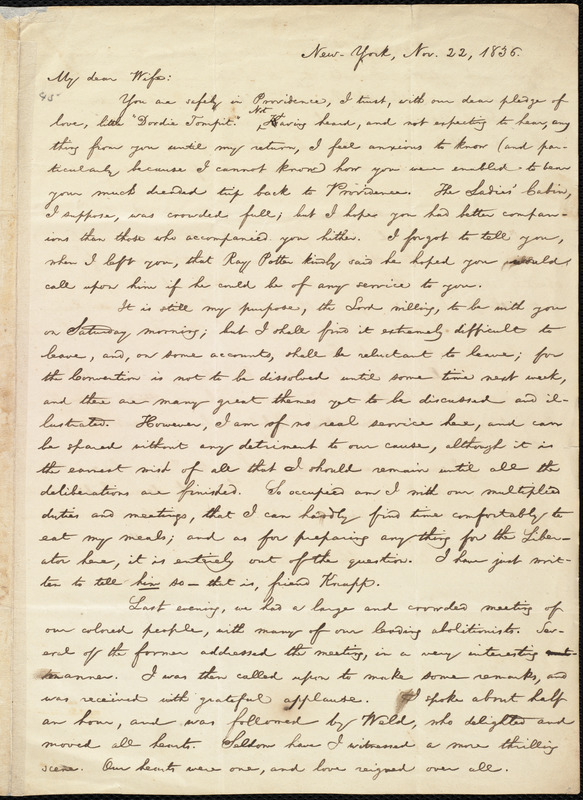 New-York, Nov. 22, 1836.
My dear Wife:
95
You are safely in Providence, I trust, with our dear pledge of
love, little "Doodie Tompit."
Not
Having heard, and not expecting to hear, any
thing from you until my return, I feel anxious to know (and par-
ticularly because I cannot know) how you were enabled to bear
your much dreaded trip back to Providence. The Ladies' Cabin,
I suppose, was crowded full; but I hope you had better compan-
ions than those who accompanied you hither. I forgot to tell you,
when I left you, that Ray Potter kindly said he hoped you would
call upon him if he could be of any service to you.
It is still my purpose, the Lord willing, to be with you
on Saturday morning; but I shall find it extremely difficult to
leave, and, on some accounts, shall be reluctant to leave; for
the Convention is not to be dissolved until some time next week,
and there are many great themes yet to be discussed and il-
lustrated. However, I am of no real service here, and can
be spared without any detriment to our cause, although it is
the earnest wish of all that I should remain until all the
deliberations are finished. So occupied am I with our multiplied
duties and meetings, that I can hardly find time comfortably to
eat my meals; and as for preparing any thing for the Liber-
ator here, it is entirely out of the question. I have just writ-
ten to tell him so—that is, friend Knapp.
Last evening, we had a large and crowded meeting of
our colored people, with many of our leading abolitionists. Sev-
eral of the former addressed the meeting, in a very interesting
manner. I was then called upon to make some remarks, and
was received with grateful applause. I spoke about half
an hour, and was followed by Weld, who delighted and
moved all hearts. Seldom have I witnessed a more thrilling
scene. Our hearts were one, and love reigned over all.